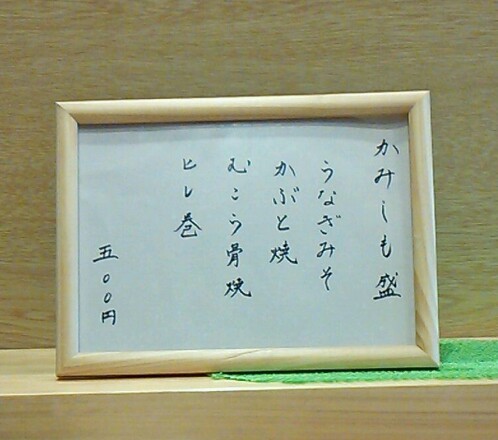 かみしも盛
うなぎみそ
かぶと焼
むこう骨焼
ヒレ巻
五〇〇円